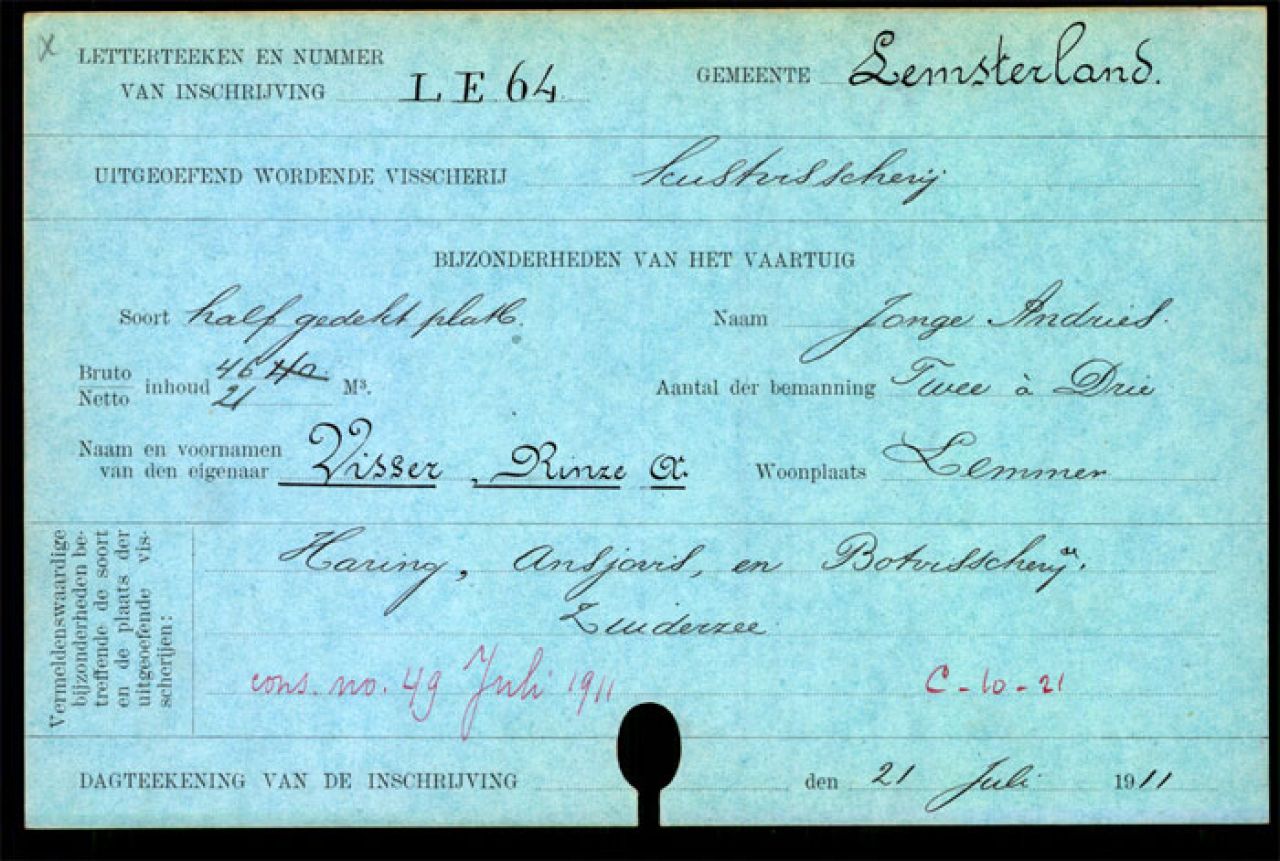 x
LETTERTEEKEN EN NUMMER
VAN INSCHRIJVING LE 64. GEMEENTE Lemsterland.
UITGEOEFEND WORDENDE VISSCHERIJ kustvisscherij
BIJZONDERHEDEN VAN HET VAARTUIG
Soort half gedekt platb. Naam Jonge Andries.
Bruto 46 40
Netto inhoud 21 M³. Aantal der bemanning Twee à Drie
Naam en voornamen
van den eigenaar Visser, Rinze A. Woonplaats Lemmer
Vermeldenswaardige
bijzonderheden be-
treffende de soort
en de plaats der
uitgeoefende vis-
scherijen:
Haring, Ansjovis, en Botvisscherij.
Zuiderzee
cons. no. 49 Juli 1911 C-10-21
DAGTEEKENING VAN DE INSCHRIJVING den 21 Juli 1911